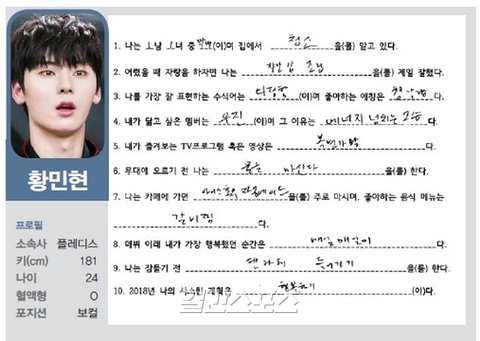 황민현
프로필
소속사 플레디스
키(cm) 181
나이 24
혈액형 O
포지션 보컬
1. 나는 1남 1녀 중 막내(이)며 집에서 청소 을(를) 맡고 있다.
2. 어렸을 때 자랑을 하자면 나는 을(를) 제일 잘했다.
3. 나를 가장 잘 표현하는 수식어는 다정함 (이)며 좋아하는 애칭은 이다.
4. 내가 닮고 싶은 멤버는 우진 (이)며 그 이유는 에너지 넘치는 이다.
5. 내가 즐겨보는 TV프로그램 혹은 영상은 복면가왕 이다.
6. 무대에 오르기 전 나는 물을 마신다 을(를) 한다.
7. 나는 카페에 가면 을(를) 주로 마시며, 좋아하는 음식 메뉴는
갈비찜 다.
8. 데뷔 이래 내가 가장 행복했던 순간은 매일매일이 다.
9. 나는 잠들기 전 을(를) 한다.
10. 2018년 나의 사소한 계획은 행복하기 (이)다.
일간스포츠